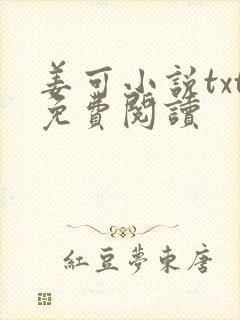 姜可小説txt
免費閱讀
紅豆夢東唐